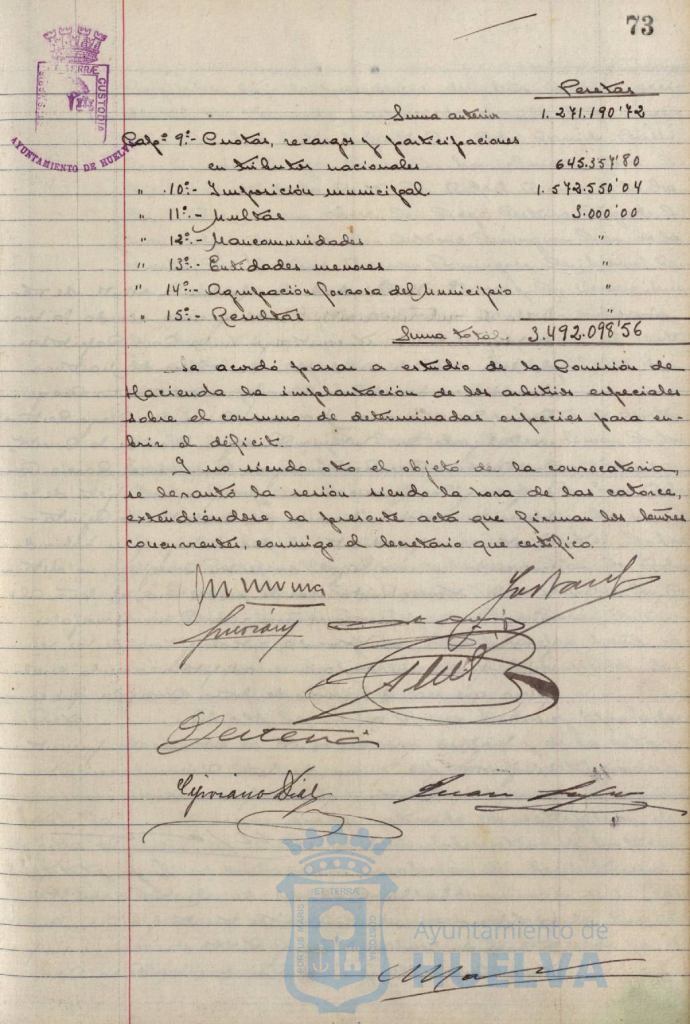 73
Pesetas
Suma anterior 1.271.190'72
Cap.º 9º.- Cuotas, recargos y participaciones
en tributos nacionales 645.357'80
" 10º.- Imposición municipal. 1.572.550'04
" 11º.- Multas 3.000'00
" 12º.- Mancomunidades "
" 13º.- Entidades menores "
" 14º.- Agrupación forzosa del Municipio "
" 15º.- Resultas "
Suma total. 3.492.098'56
Se acordó pasar a estudio de la Comisión de
Hacienda la implantación de los arbitrios especiales
sobre el consumo de determinadas especies para cu-
brir el déficit.
Y no siendo otro el objeto de la convocatoria,
se levantó la sesión siendo la hora de las catorce,
extendiéndose la presente acta que firman los Señores
concurrentes, conmigo el Secretario que certifico.
Cipriano Dial
Juan
ET TERRÆ
CUSTODIA
AYUNTAMIENTO DE HUELVA
ET TERRÆ
PORTUS MARIS
CUSTODIA
Ayuntamiento de
HUELVA